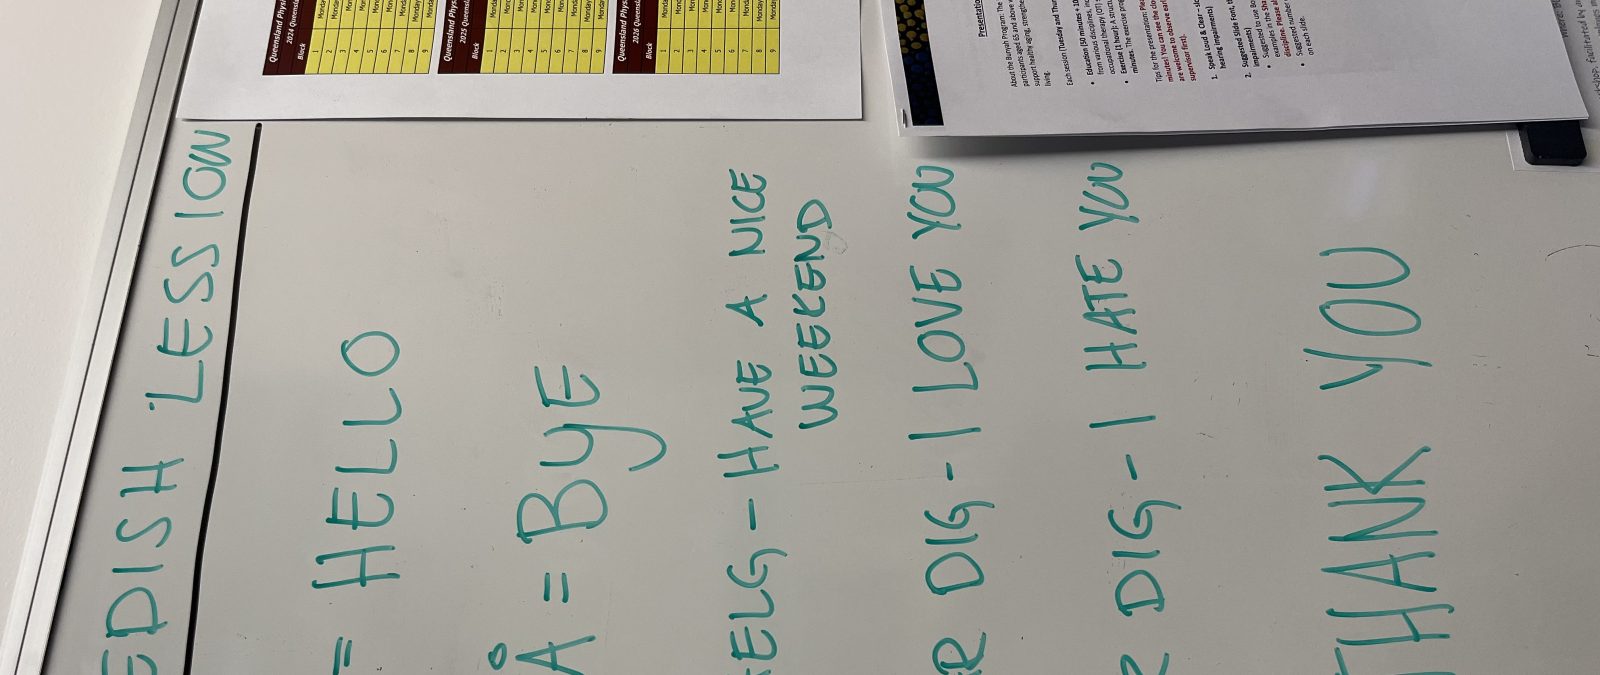 EDISH LESSION
= HELLO
Å = BYE
ELG - HAVE A NICE
WEEKEND
R DIG - I LOVE YOU
R DIG - I HATE YOU
THANK YOU
Queensland Physi
2024 Queensla
Block
1 Monda
2 Monda
3 Monda
4 Monda
5 Monda
6 Monda
7 Monda
8 Monday
9 Monda
Queensland Phys
2025 Queensl
Block
1 Monda
2 Monda
3 Monda
4 Monda
5 Monda
6 Monda
7 Monda
8 Monda
9 Monda
Queensland Physi
2026 Queensla
Block
1 Monda
2 Monda
3 Monda
4 Monda
5 Monda
6 Monda
7 Monda
8 Monda
9 Monda
Presentation
About the Program: The
participants aged 65 and above
support healthy aging, strengthe
living.
Each session (Tuesday and Thur
• Education (50 minutes + 10
from various disciplines, inc
occupational therapy (OT)
• Exercise (1 hour): A structu
minutes. The exercise prog
Tips for the presentation: Plea
minutes! You can see the clo
are welcome to observe earl
supervisor first).
1. Speak Loud & Clear – s
hearing impairments)
2. Suggested Slide Font, t
impairments)
• Suggested to use Bo
examples in the Sha
discipline. Please al
• Suggested number
on each slide.